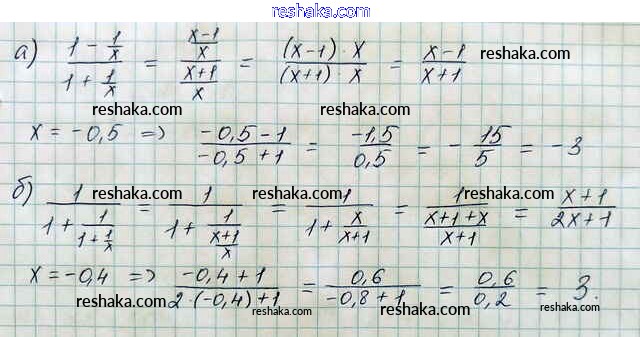 reshaka.com
а) (1 - 1/x)/(1 + 1/x) = ((x-1)/x)/((x+1)/x) = ((x-1)·x)/((x+1)·x) = (x-1)/(x+1) reshaka.com
reshaka.com reshaka.com
x = -0,5 => (-0,5-1)/(-0,5+1) = (-1,5)/(0,5) = - 15/5 = -3
б) 1/(1 + 1/(1 + 1/x)) = 1/(1 + 1/((x+1)/x)) = 1/(1 + x/(x+1)) = 1/((x+1+x)/(x+1)) = (x+1)/(2x+1)
reshaka.com reshaka.com reshaka.com
x = -0,4 => (-0,4+1)/(2·(-0,4)+1) = (0,6)/(-0,8+1) = (0,6)/(0,2) = 3.
reshaka.com reshaka.com reshaka.com